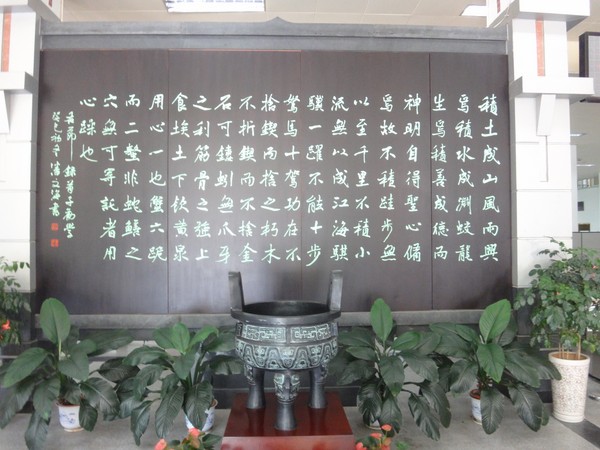 積土成山風雨興
焉積水成淵蛟龍
生焉積善成德而
神明自得聖心備
焉故不積跬步無
以至千里不積小
流無以成江海騏
驥一躍不能十步
駑馬十駕功在不
捨鍥而捨之朽木
不折鍥而不捨金
石可鏤蚓無爪牙
之利筋骨之強上
食埃土下飲黃泉
用心一也蟹六跪
而二螯非蛇鱔之
穴無可寄託者用
心躁也
節錄荀子勸學